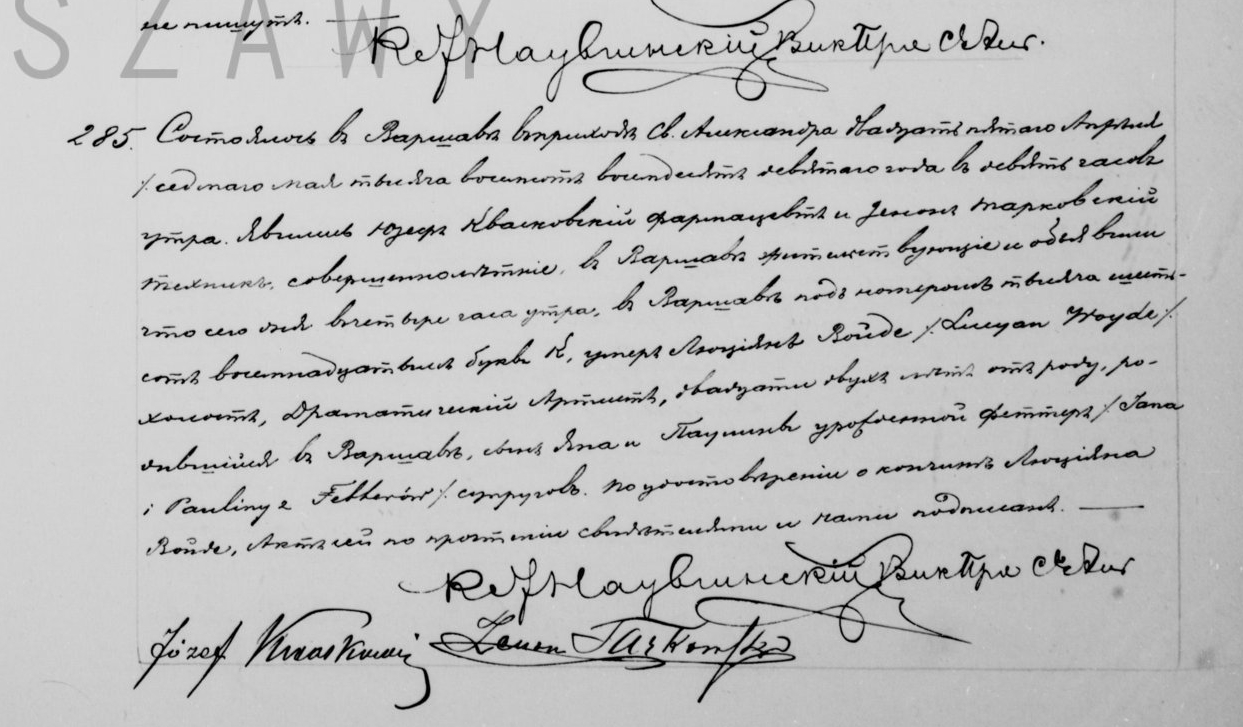 SZAWY
не пишутъ.
285. Состоялось въ Варшавѣ въ приходѣ Св. Александра двадцать пятаго Апрѣля
/седмаго Мая тысяча восемьсотъ восемдесятъ девятаго года въ девять часовъ
утра. Явились Юзефъ Квасковскій фармацевтъ и Зенонъ Тарковскій
техникъ, совершеннолѣтніе, въ Варшавѣ жительствующіе и объявили
что сего дня въ четыре часа утра, въ Варшавѣ подъ номеромъ тысяча шесть-
сотъ восемнадцатымъ буквы К, умеръ Люціянъ Войде /Lucyan Woyde/.
холостъ, Драматическій Артистъ, двадцати двухъ лѣтъ отъ роду, ро-
дившійся въ Варшавѣ, сынъ Яна и Паулины урожденной Феттеръ /Jana
i Pauliny z Fetterów/. супруговъ. По удостовѣреніи о кончинѣ Люціяна
Войде, Актъ сей по прочтеніи свидѣтелями и нами подписанъ.
Józef Kwaskowski Zenon Tarkowski